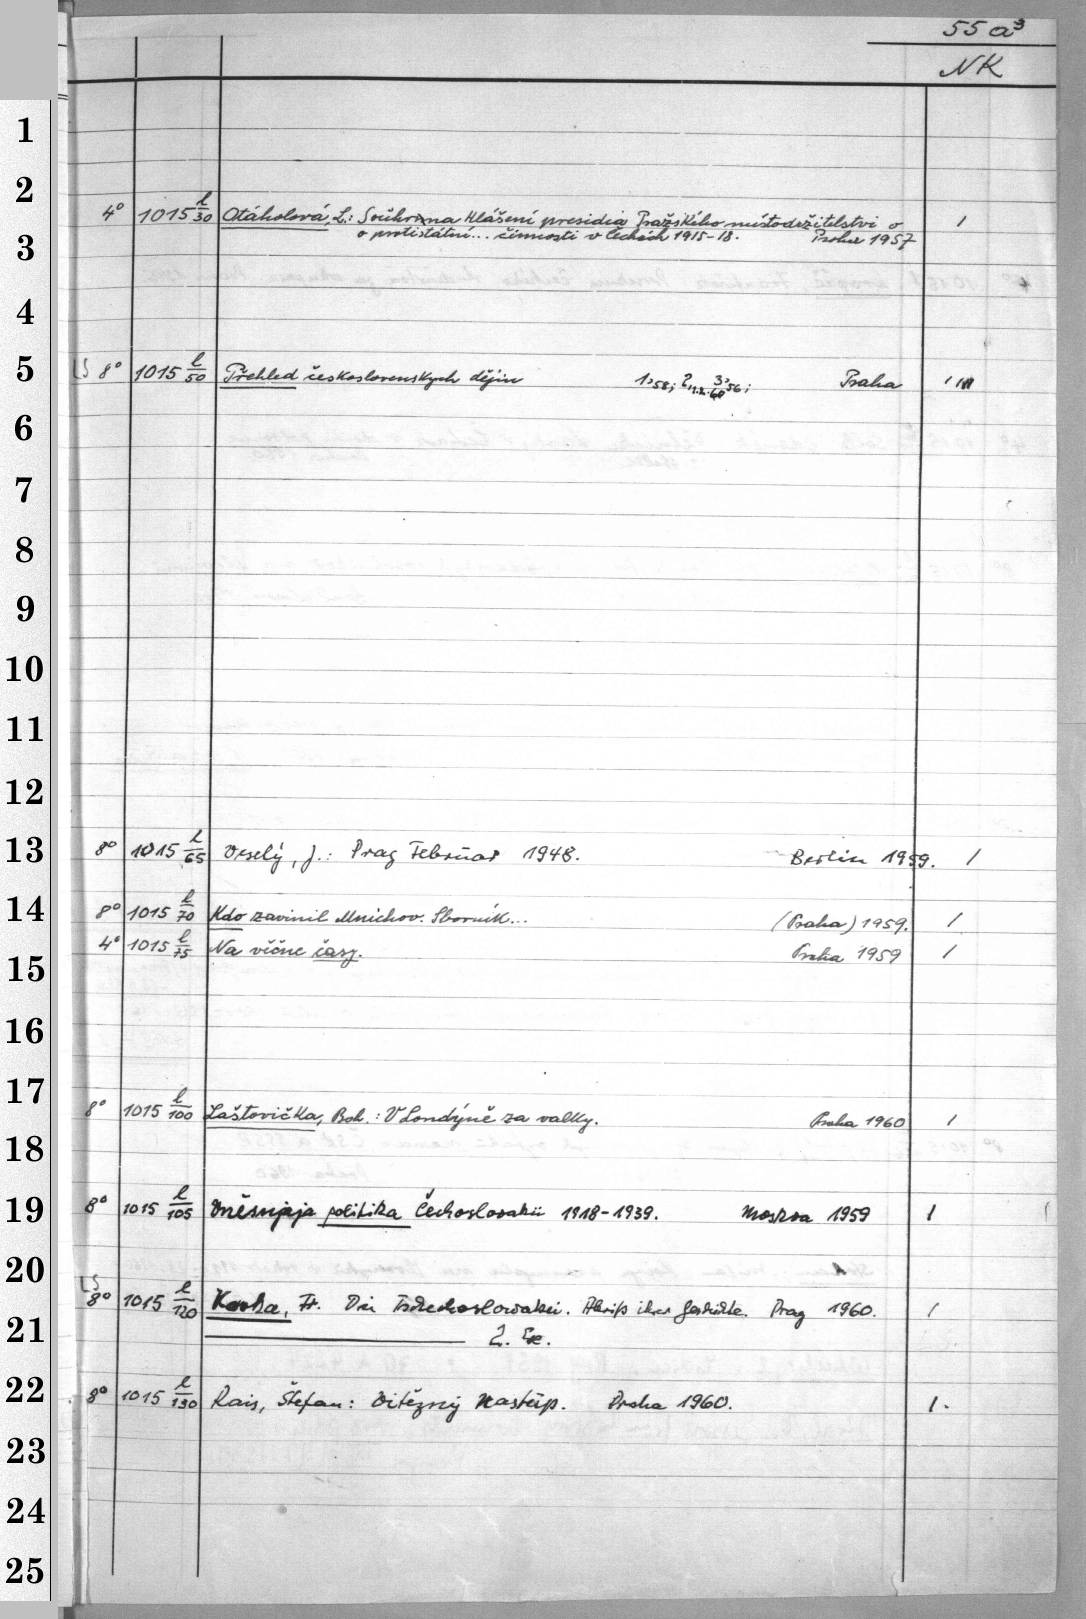 55 a³
NK
1
2
4° 1015 l/30 Otáholová, L.: Souhrnna hlášení presidia Pražského místodržitelstvi o /
o protistátní... činnosti v Čechách 1915-18. Praha 1957
3
4
5
LS 8° 1015 l/50 Přehled československych dějin 1,58; 2 11.2.60 3,56; Praha / / / /
6
7
8
9
10
11
12
13
8° 1015 l/65 Veselý, J.: Prag Februar 1948. Berlin 1959. /
14
8° 1015 l/70 Kdo zavinil Mnichov. Sborník... (Praha) 1959. /
4° 1015 l/75 Na věčne časy. Praha 1959 /
15
16
17
8° 1015 l/100 Laštovička, Boh.: V Londýně za valky. Praha 1960 /
18
19
8° 1015 l/105 Vněšnjaja politika Čechoslovakii 1918-1939. Moskva 1959 /
20
LS
8° 1015 l/120 Kavka, Fr. Die Tschechoslowakei. Abriß ihrer Geschichte. Prag 1960. /
21
2. Ex.
22
8° 1015 l/130 Rais, Štefan: Vitězný nastup. Praha 1960. /.
23
24
25